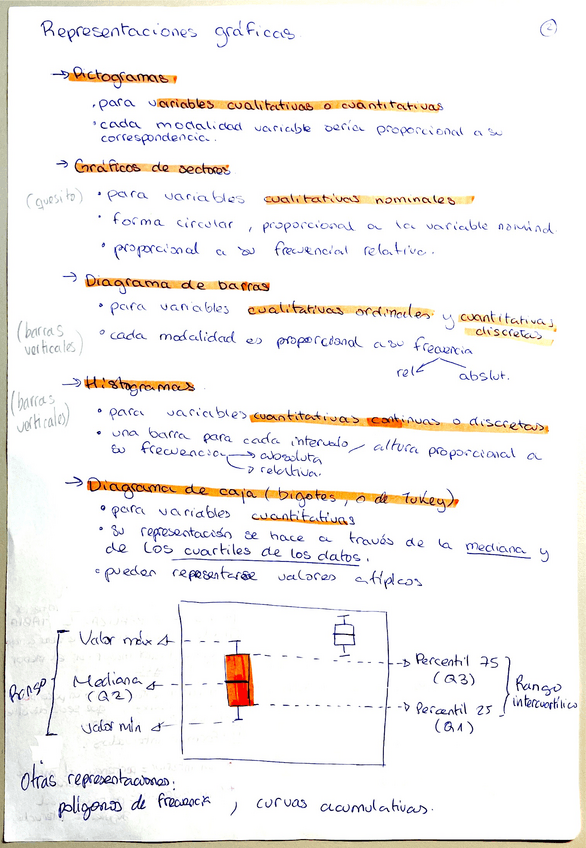 Representaciones gráficas.
2
→ Pictogramas.
· para variables cualitativas o cuantitativas
· cada modalidad variable sería proporcional a su
correspondencia.
→ Gráficos de sectores
(quesito)
· para variables cualitativas nominales
· forma circular, proporcional a la variable nomind.
· proporcional a su frecuencial relativa.
→ Diagrama de barras
· para variables cualitativas ordinales y cuantitativas
discretas.
(barras
verticales)
· cada modalidad es proporcional a su frecuencia
rel absolut.
→ Histogramas.
(barras
verticales)
· para variables cuantitativas continuas o discretas
· una barra para cada intervalo / altura proporcional a
su frecuencia → absoluta
→ relativa.
→ Diagrama de caja (bigotes, o de Tukey)
· para variables cuantitativas
· su representación se hace a través de la mediana y
de los cuartiles de los datos.
· pueden representarse valores atípicos
Rango
Valor máx
Mediana
(Q2)
Valor min
Percentil 75
(Q3)
Percentil 25
(Q1)
Rango
intercuartílico
Otras representaciones:
polígonos de frecuencia, curvas acumulativas.